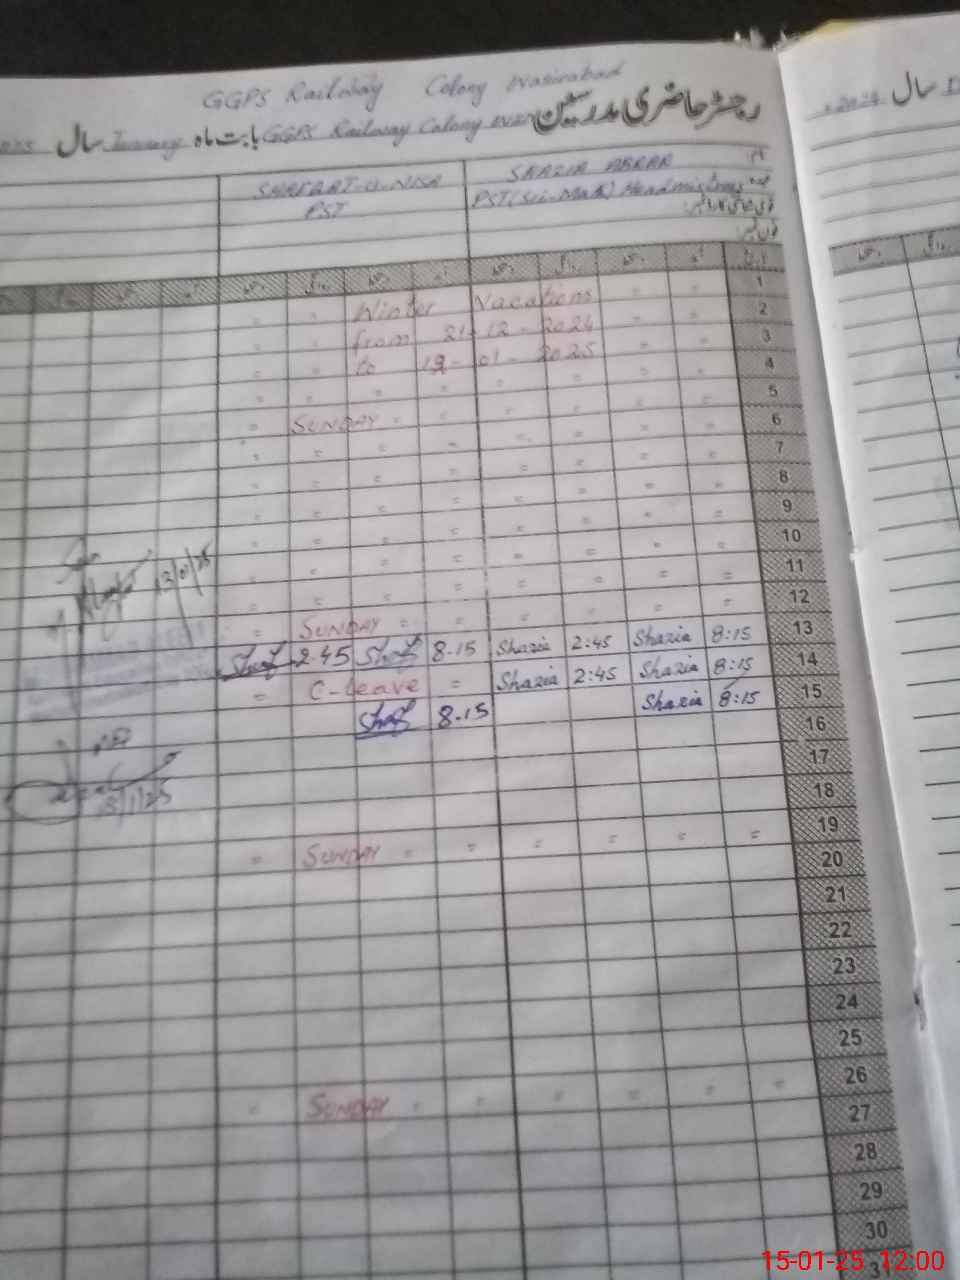 GGPS Railway Colony Wazirabad
رجسٹر حاضری مدرسین GGPS Railway Colony بابت ماہ January سال
2024 سال
نام SHAZIA ABRAR SHAFQAT-U-NISA
عہدہ PST (Sci-Math) Headmistress PST
قومی شناختی کارڈ نمبر
فون نمبر
تاریخ آمد دستخط روانگی دستخط آمد دستخط روانگی دستخط
1
Winter Vacations 2
from 21-12-2024 3
to 12-01-2025 4
5
SUNDAY 6
7
8
9
10
11
12
SUNDAY 13
Shaf 2.45 Shaf 8.15 Shazia 2:45 Shazia 8:15 14
C-leave Shazia 2:45 Shazia 8:15 15
Shaf 8.15 Shazia 8:15 16
17
18
19
SUNDAY 20
21
22
23
24
25
26
SUNDAY 27
28
29
30
31
13/01/25
13/1/25
15-01-25 12:00